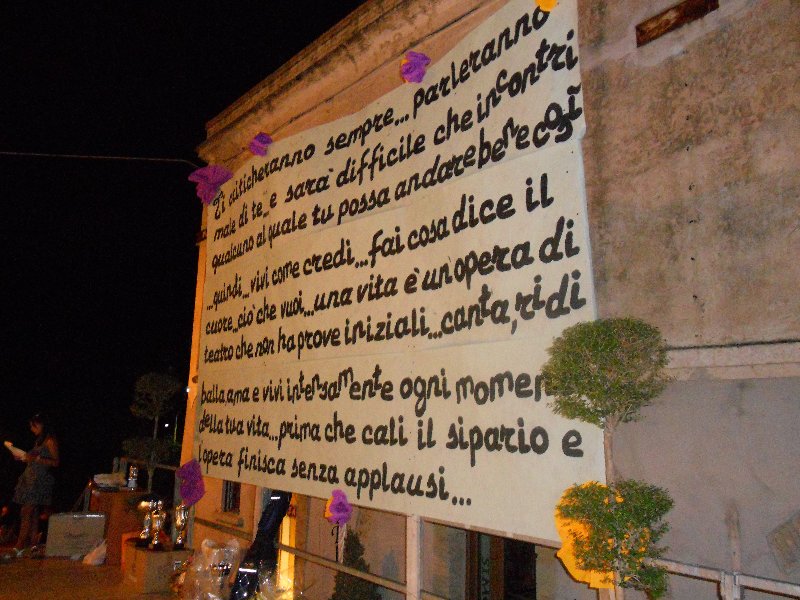 Ti criticheranno sempre... parleranno
male di te.. e sara' difficile che incontri
qualcuno al quale tu possa andare bene così
...quindi...vivi come credi...fai cosa dice il
cuore...ciò che vuoi...una vita è un'opera di
teatro che non ha prove iniziali...canta, ridi
balla, ama e vivi intensamente ogni momen
della tua vita...prima che cali il sipario e
l'opera finisca senza applausi...